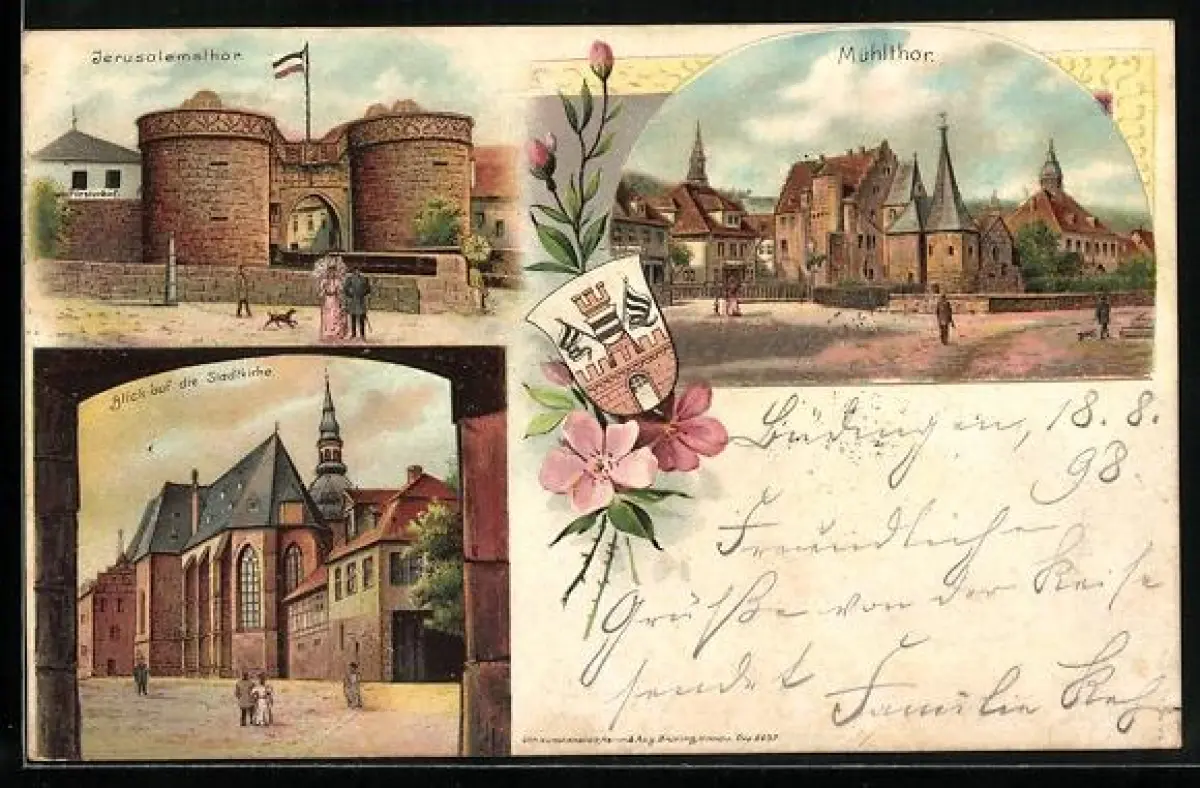 Jerusalemsthor.
Mühlthor.
Fürstenhof
Blick auf die Stadtkirche.
Büdingen, 18. 8.
98.
Freundliche
Grüße von der Reise
sendet Familie